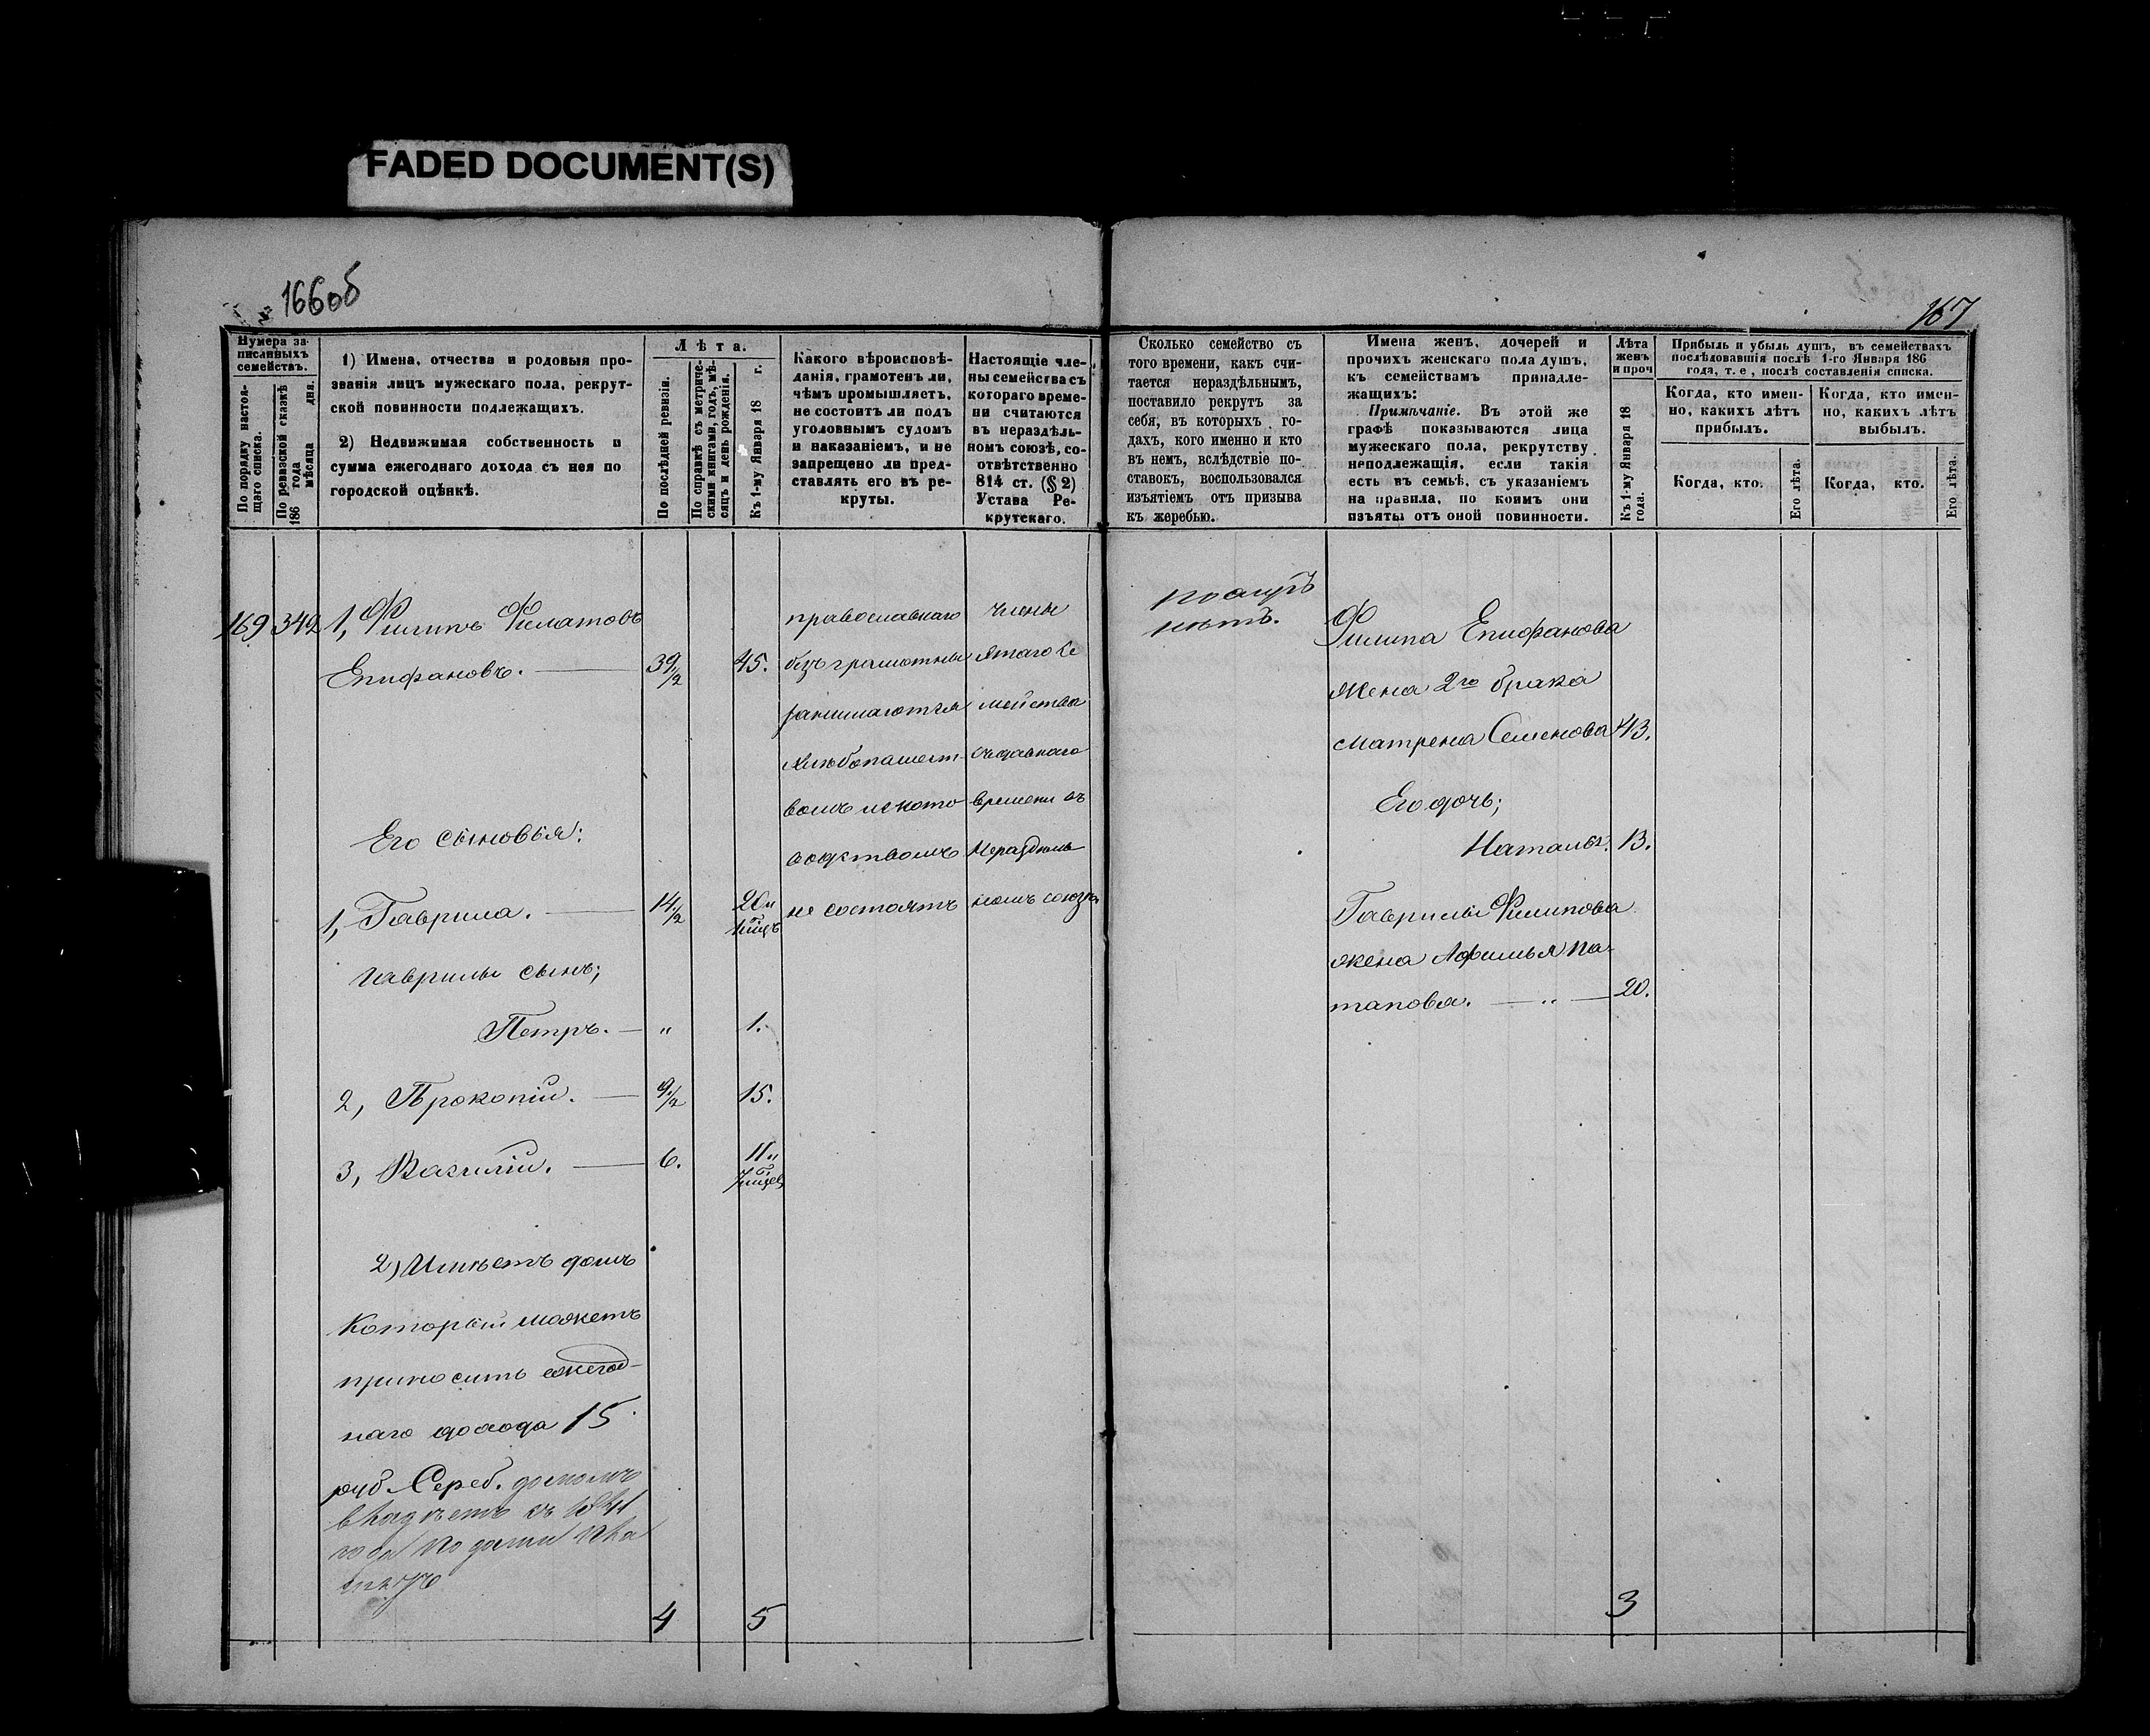 FADED DOCUMENT(S)
166об
167
Нумера за-
писанныхъ
семействъ.
По порядку настоя-
щаго списка.
По ревизской сказкѣ
186 года
мѣсяца дня.
1) Имена, отчества и родовыя про-
званія лицъ мужескаго пола, рекрут-
ской повинности подлежащихъ.
2) Недвижимая собственность и
сумма ежегоднаго дохода съ нея по
городской оцѣнкѣ.
Лѣта.
По послѣдней ревизіи.
По справкѣ съ метриче-
скими книгами, годъ, мѣ-
сяцъ и день рожденія.
Къ 1-му Января 18 г.
Какого вѣроисповѣ-
данія, грамотенъ ли,
чѣмъ промышляетъ,
не состоитъ ли подъ
уголовнымъ судомъ
и наказаніемъ, и не
запрещено ли пред-
ставлять его въ ре-
круты.
Настоящіе чле-
ны семейства съ
котораго време-
ни считаются
въ нераздѣль-
номъ союзѣ, со-
отвѣтственно
814 ст. (§ 2)
Устава Ре-
крутскаго.
Сколько семейство съ
того времени, какъ счи-
тается нераздѣльнымъ,
поставило рекрутъ за
себя, въ которыхъ го-
дахъ, кого именно и кто
въ немъ, вслѣдствіе по-
ставокъ, воспользовался
изъятіемъ отъ призыва
къ жеребью.
Имена женъ, дочерей и
прочихъ женскаго пола душъ,
къ семействамъ принадле-
жащихъ:
Примѣчаніе. Въ этой же
графѣ показываются лица
мужескаго пола, рекрутству
неподлежащія, если такія
есть въ семьѣ, съ указаніемъ
на правила, по коимъ они
изъяты отъ оной повинности.
Лѣта
женъ
и проч
Къ 1-му Января 18
года.
Прибыль и убыль душъ, въ семействахъ
послѣдовавшія послѣ 1-го Января 186
года, т. е, послѣ составленія списка.
Когда, кто имен-
но, какихъ лѣтъ
прибылъ.
Когда, кто.
Его лѣта.
Когда, кто имен-
но, какихъ лѣтъ
выбылъ.
Когда, кто.
Его лѣта.
169 349 1, Филипъ Филатовъ
Епифановъ. 39 1/2 45.
Его сыновья:
1, Гаврила. 14 1/2 20 и
Гаврилы сынъ;
Петръ. " 1.
2, Прокопій. 9 1/2 15.
3, Василій. 6. 11 и
2) Имѣетъ домъ
который можетъ
приносить ежегод-
наго дохода 15
руб. Сереб. домомъ
владѣетъ съ
года по
4 5
православнаго
безграмотны
занимаются
хлѣбопашест-
вомъ и ското-
водствомъ
не состоятъ
члены
этаго Се
мейства
съ давнаго
времени въ
Нераздѣль
номъ союзѣ
нѣтъ.
Филипа Епифанова
жена 2го брака
Матрена Семенова 43.
Его дочь;
Наталья. 13.
Гаврилы Филипова
жена Афимья По-
тапова. 20.
3